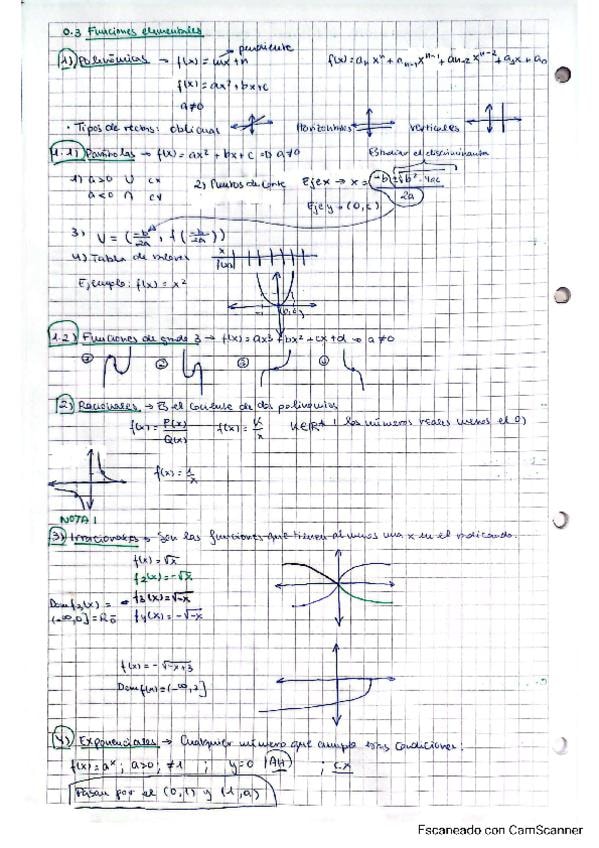 0.3 Funciones elementales
pendiente
1) Polinómicas → f(x) = mx+n f(x) = aₙ xⁿ + aₙ₋₁ xⁿ⁻¹ + aₙ₋₂ xⁿ⁻² + a₁x + a₀
f(x) = ax² + bx + c
a≠0
· Tipos de rectas: oblicuas Horizontales verticales
1.1) Parábolas → f(x) = ax² + bx + c => a≠0 Estudiar el discriminante
1) a>0 ∪ cx 2) Puntos de corte Eje x → x = -b±√b²-4ac / 2a
a<0 ∩ cv Eje y → (0, c)
3) V = (-b/2a, f(-b/2a))
4) Tabla de valores x f(x)
Ejemplo: f(x) = x²
(0,0)
1.2) Funciones de grado 3 → f(x) = ax³ + bx² + cx + d => a≠0
① ② ③ ④
2) Racionales → Es el cociente de dos polinomios
f(x) = P(x)/Q(x) f(x) = K/x K∈R* (los números reales menos el 0)
f(x) = 1/x
NOTA 1
3) Irracionales → Son las funciones que tienen al menos una x en el radicando.
f(x) = √x
f2(x) = -√x
Dom f3(x) = f3(x) = √-x
(-∞,0] = R₀⁻ f4(x) = -√-x
f(x) = -√-x+3
Dom f(x) = (-∞, 3]
4) Exponenciales → Cualquier número que cumpla esas condiciones:
f(x) = aˣ ; a>0, ≠1 ; y=0 (AH) ; cx
Pasan por el (0,1) y (1,a)
Escaneado con CamScanner